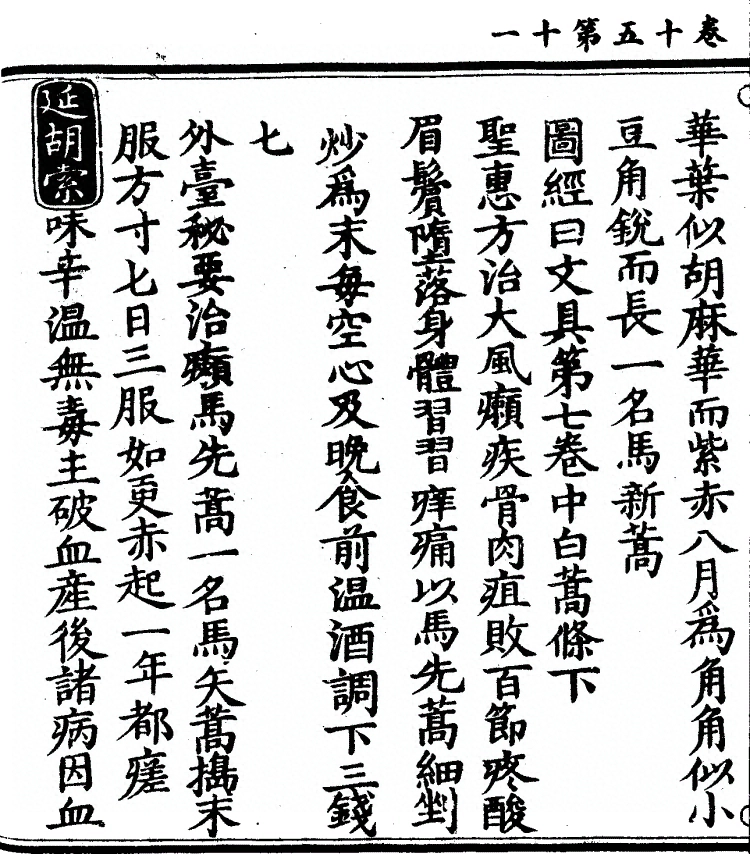 卷十五第十一
華葉似胡麻華而紫赤八月為角角似小
豆角銳而長一名馬新蒿
圖經曰文具第七卷中白蒿條下
聖惠方治大風癩疾骨肉疽敗百節疼酸
眉鬢墮落身體習習痒痛以馬先蒿細剉
炒爲末每空心及晚食前温酒調下三錢
七
外臺秘要治癩馬先蒿一名馬矢蒿搗末
服方寸七日三服如更赤起一年都瘥
延胡索味辛温無毒主破血產後諸病因血